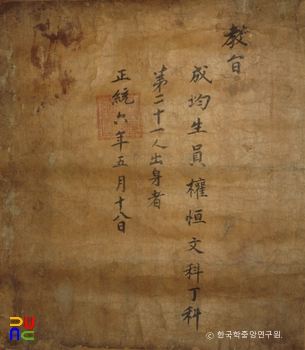 敎旨
成均生員權恒文科丁科
第二十一人出身者
正統六年五月十八日
© 한국학중앙연구원.